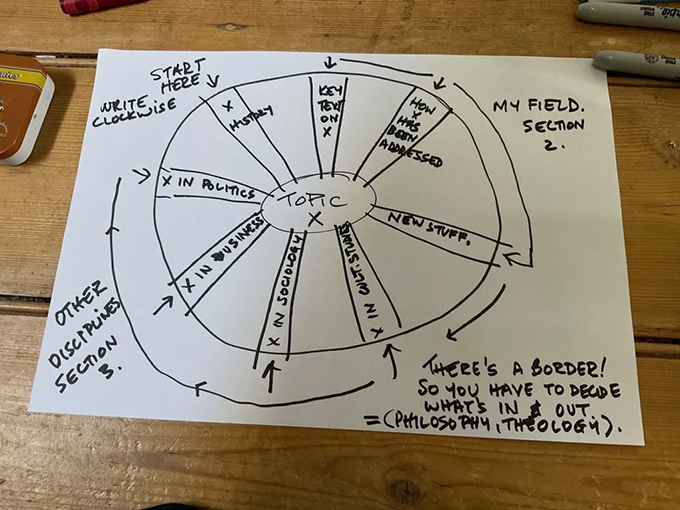 START
HERE
WRITE
CLOCKWISE
X
HISTORY
KEY
TEXT
ON
X
HOW
X
HAS
BEEN
ADDRESSED
MY FIELD.
SECTION
2.
X IN POLITICS
TOPIC
X
NEW STUFF.
X IN BUSINESS
X IN SOCIOLOGY
X IN MGT.STUDIES
OTHER
DISCIPLINES
SECTION
3.
THERE'S A BORDER!
SO YOU HAVE TO DECIDE
WHAT'S IN & OUT
=(PHILOSOPHY, THEOLOGY).
FINE
POINT